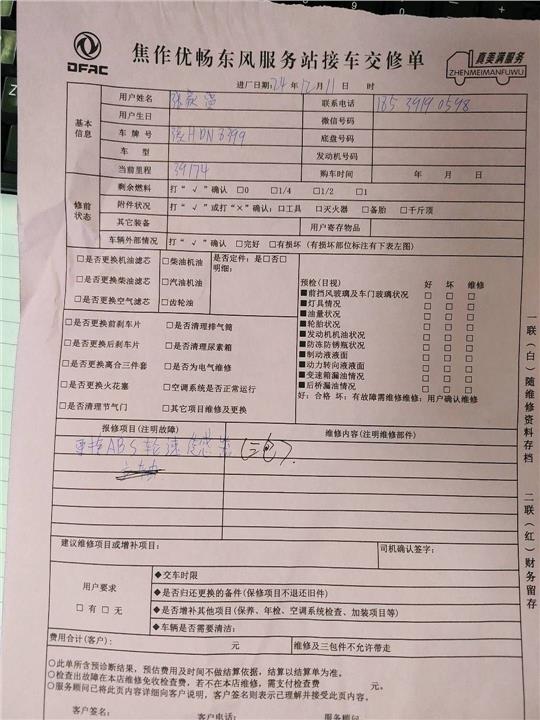 DFAC
焦作优畅东风服务站接车交修单
真美满服务
ZHENMEIMANFUWU
进厂日期:24 年 12 月 11 日 时
基本信息
用户姓名 联系电话 185 3919 0598
用户生日 微信号码
车牌号 HDN6399 底盘号码
车型 发动机号码
当前里程 39174 购车时间 年 月 日
修前状态
剩余燃料 打“√”确认 □0 □1/4 □1/2 □1
附件状况 打“√”或打“×”确认:□工具 □灭火器 □备胎 □千斤顶
其它装备 用户寄存物品
车辆外部情况 打“√”确认 □完好 □有损坏 (有损坏部位标注有下表左图)
□是否更换机油滤芯 □柴油机油 是否定件:是□否□
明细:
□是否更换柴油滤芯 □汽油机油
□是否更换空气滤芯 □齿轮油
□是否更换前刹车片 □是否清理排气筒
□是否更换后刹车片 □是否清理尿素箱
□是否更换离合三件套 □是否为电气维修
□是否更换火花塞 □空调系统是否正常运行
□是否清理节气门 □其它项目维修及更换
预检(目视) 好 坏 维修
■前挡风玻璃及车门玻璃状况 □ □ □
■灯具情况 □ □ □
■油量状况 □ □ □
■轮胎状况 □ □ □
■发动机机油状况 □ □ □
■防冻防锈瓶状况 □ □ □
■制动液液面 □ □ □
■动力转向液液面 □ □ □
■变速箱漏油情况 □ □ □
■后桥漏油情况 □ □ □
好:合格 坏:有故障需维修维修:用户确认维修
报修项目(注明故障) 维修内容(注明维修部件)
更换ABS轮速传感器(三包).
建议维修项目或增补项目: 司机确认签字:
用户要求
□ 有 □ 无
◆交车时限
◆是否归还更换的备件(保修项目不退还旧件)
◆是否增补其他项目(保养、年检、空调系统检查、加装项目等)
◆车辆是否需要清洁:
费用合计(客户): 元 维修及三包件不允许带走
○此单所含预诊断结果,预估费用及时间不做结算依据,结算以结算单为准。
○检查出故障在本店维修免收检查费,若不在本店维修,需支付检查费 元。
○服务顾问已将此页内容详细向客户说明,客户签名则表示已理解并接受此页内容。
客户签名: 客户电话: 服务顾问
一联(白)随维修资料存档 二联(红)财务留存